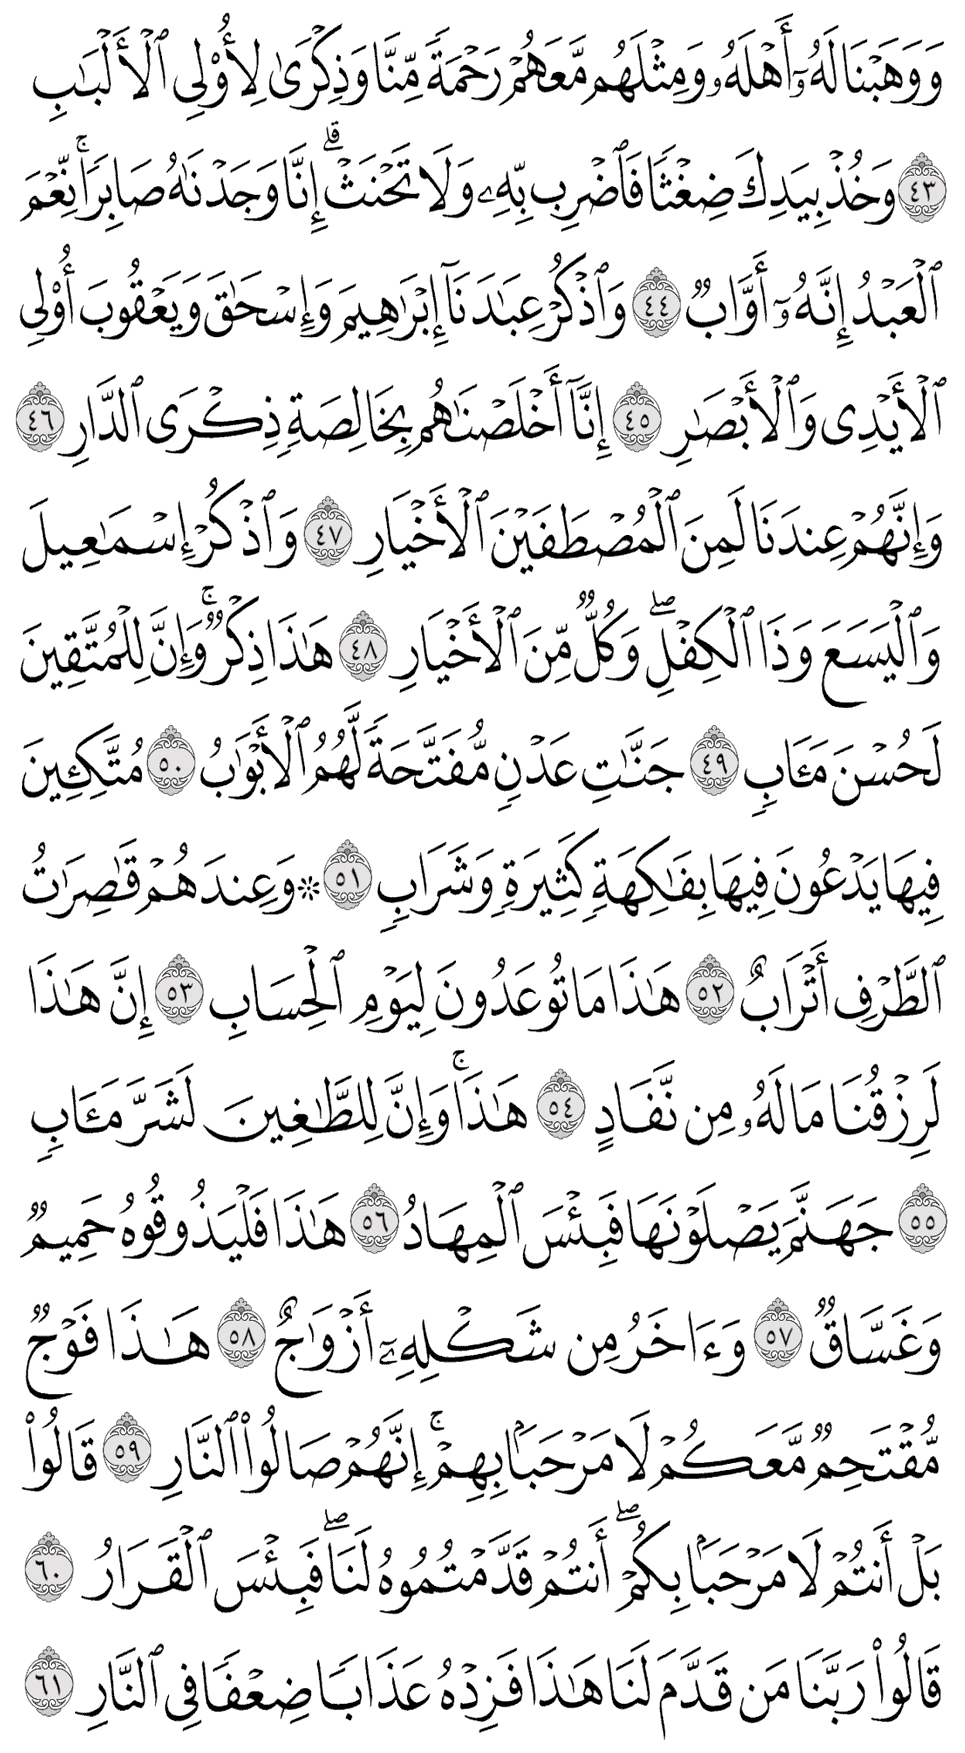 وَوَهَبْنَا لَهُۥٓ أَهْلَهُۥ وَمِثْلَهُم مَّعَهُمْ رَحْمَةً مِّنَّا وَذِكْرَىٰ لِأُو۟لِى ٱلْأَلْبَـٰبِ
٤٣ وَخُذْ بِيَدِكَ ضِغْثًا فَٱضْرِب بِّهِۦ وَلَا تَحْنَثْ ۗ إِنَّا وَجَدْنَـٰهُ صَابِرًا ۚ نِّعْمَ
ٱلْعَبْدُ إِنَّهُۥٓ أَوَّابٌ ٤٤ وَٱذْكُرْ عِبَـٰدَنَآ إِبْرَٰهِيمَ وَإِسْحَـٰقَ وَيَعْقُوبَ أُو۟لِى
ٱلْأَيْدِى وَٱلْأَبْصَـٰرِ ٤٥ إِنَّآ أَخْلَصْنَـٰهُم بِخَالِصَةٍ ذِكْرَى ٱلدَّارِ ٤٦
وَإِنَّهُمْ عِندَنَا لَمِنَ ٱلْمُصْطَفَيْنَ ٱلْأَخْيَارِ ٤٧ وَٱذْكُرْ إِسْمَـٰعِيلَ
وَٱلْيَسَعَ وَذَا ٱلْكِفْلِ ۖ وَكُلٌّ مِّنَ ٱلْأَخْيَارِ ٤٨ هَـٰذَا ذِكْرٌ ۚ وَإِنَّ لِلْمُتَّقِينَ
لَحُسْنَ مَـَٔابٍ ٤٩ جَنَّـٰتِ عَدْنٍ مُّفَتَّحَةً لَّهُمُ ٱلْأَبْوَٰبُ ٥٠ مُتَّكِـِٔينَ
فِيهَا يَدْعُونَ فِيهَا بِفَـٰكِهَةٍ كَثِيرَةٍ وَشَرَابٍ ٥١ * وَعِندَهُمْ قَـٰصِرَٰتُ
ٱلطَّرْفِ أَتْرَابٌ ٥٢ هَـٰذَا مَا تُوعَدُونَ لِيَوْمِ ٱلْحِسَابِ ٥٣ إِنَّ هَـٰذَا
لَرِزْقُنَا مَا لَهُۥ مِن نَّفَادٍ ٥٤ هَـٰذَا ۚ وَإِنَّ لِلطَّـٰغِينَ لَشَرَّ مَـَٔابٍ
٥٥ جَهَنَّمَ يَصْلَوْنَهَا فَبِئْسَ ٱلْمِهَادُ ٥٦ هَـٰذَا فَلْيَذُوقُوهُ حَمِيمٌ
وَغَسَّاقٌ ٥٧ وَءَاخَرُ مِن شَكْلِهِۦٓ أَزْوَٰجٌ ٥٨ هَـٰذَا فَوْجٌ
مُّقْتَحِمٌ مَّعَكُمْ لَا مَرْحَبًۢا بِهِمْ ۚ إِنَّهُمْ صَالُوا۟ ٱلنَّارِ ٥٩ قَالُوا۟
بَلْ أَنتُمْ لَا مَرْحَبًۢا بِكُمْ ۖ أَنتُمْ قَدَّمْتُمُوهُ لَنَا ۖ فَبِئْسَ ٱلْقَرَارُ ٦٠
قَالُوا۟ رَبَّنَا مَن قَدَّمَ لَنَا هَـٰذَا فَزِدْهُ عَذَابًا ضِعْفًا فِى ٱلنَّارِ ٦١